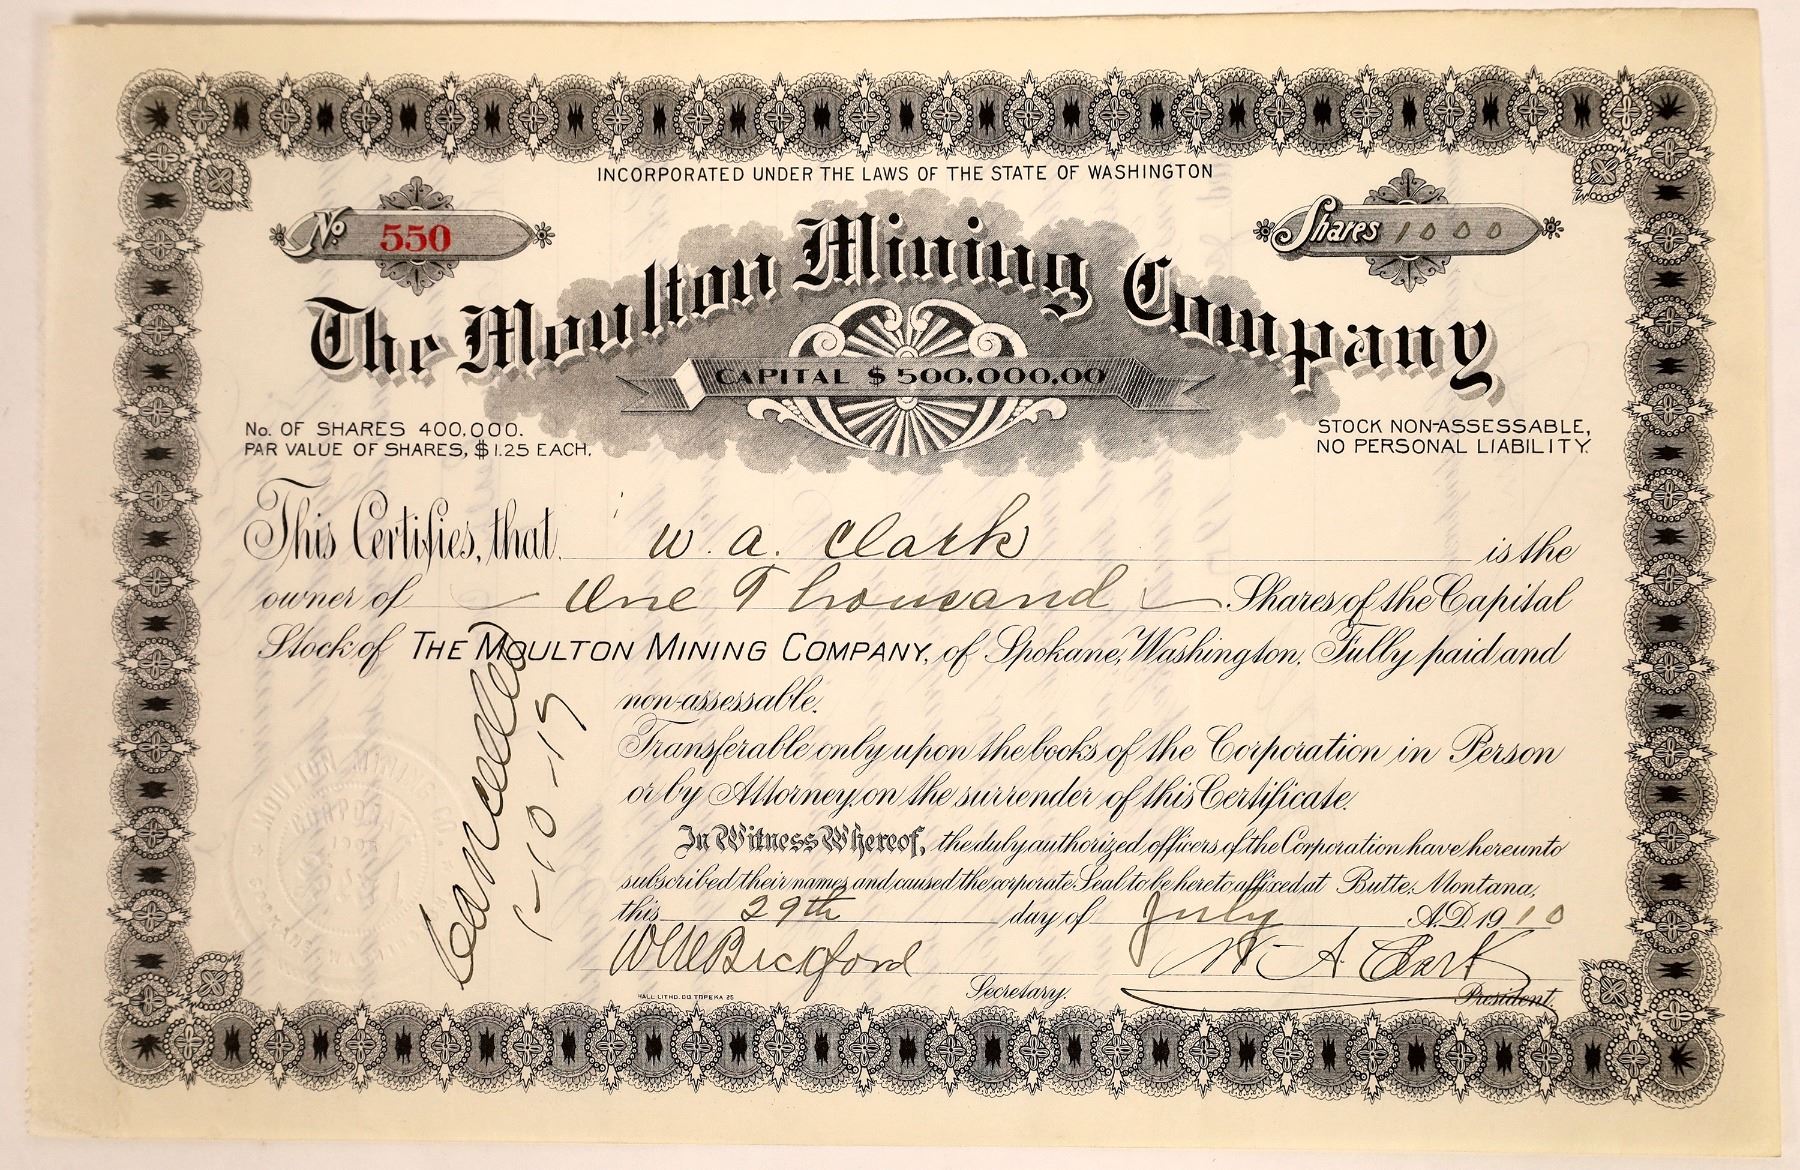 INCORPORATED UNDER THE LAWS OF THE STATE OF WASHINGTON
No 550
Shares 1000
The Moulton Mining Company,
CAPITAL $500,000.00
No. OF SHARES 400,000.
PAR VALUE OF SHARES, $1.25 EACH.
STOCK NON-ASSESSABLE,
NO PERSONAL LIABILITY.
This Certifies, that W. A. Clark is the
owner of One Thousand Shares of the Capital
Stock of THE MOULTON MINING COMPANY, of Spokane, Washington. Fully paid and
non-assessable.
Transferable only upon the books of the Corporation in Person
or by Attorney, on the surrender of this Certificate.
In Witness Whereof, the duly authorized officers of the Corporation have hereunto
subscribed their names, and caused the corporate Seal to be hereto affixed at Butte, Montana,
this 29th day of July A.D. 1910
Bickford
Secretary.
W A Clark
President.
Cancelled
1-10-19
MOULTON MINING CO.
CORPORATE
HALL LITHO. CO TOPEKA 25